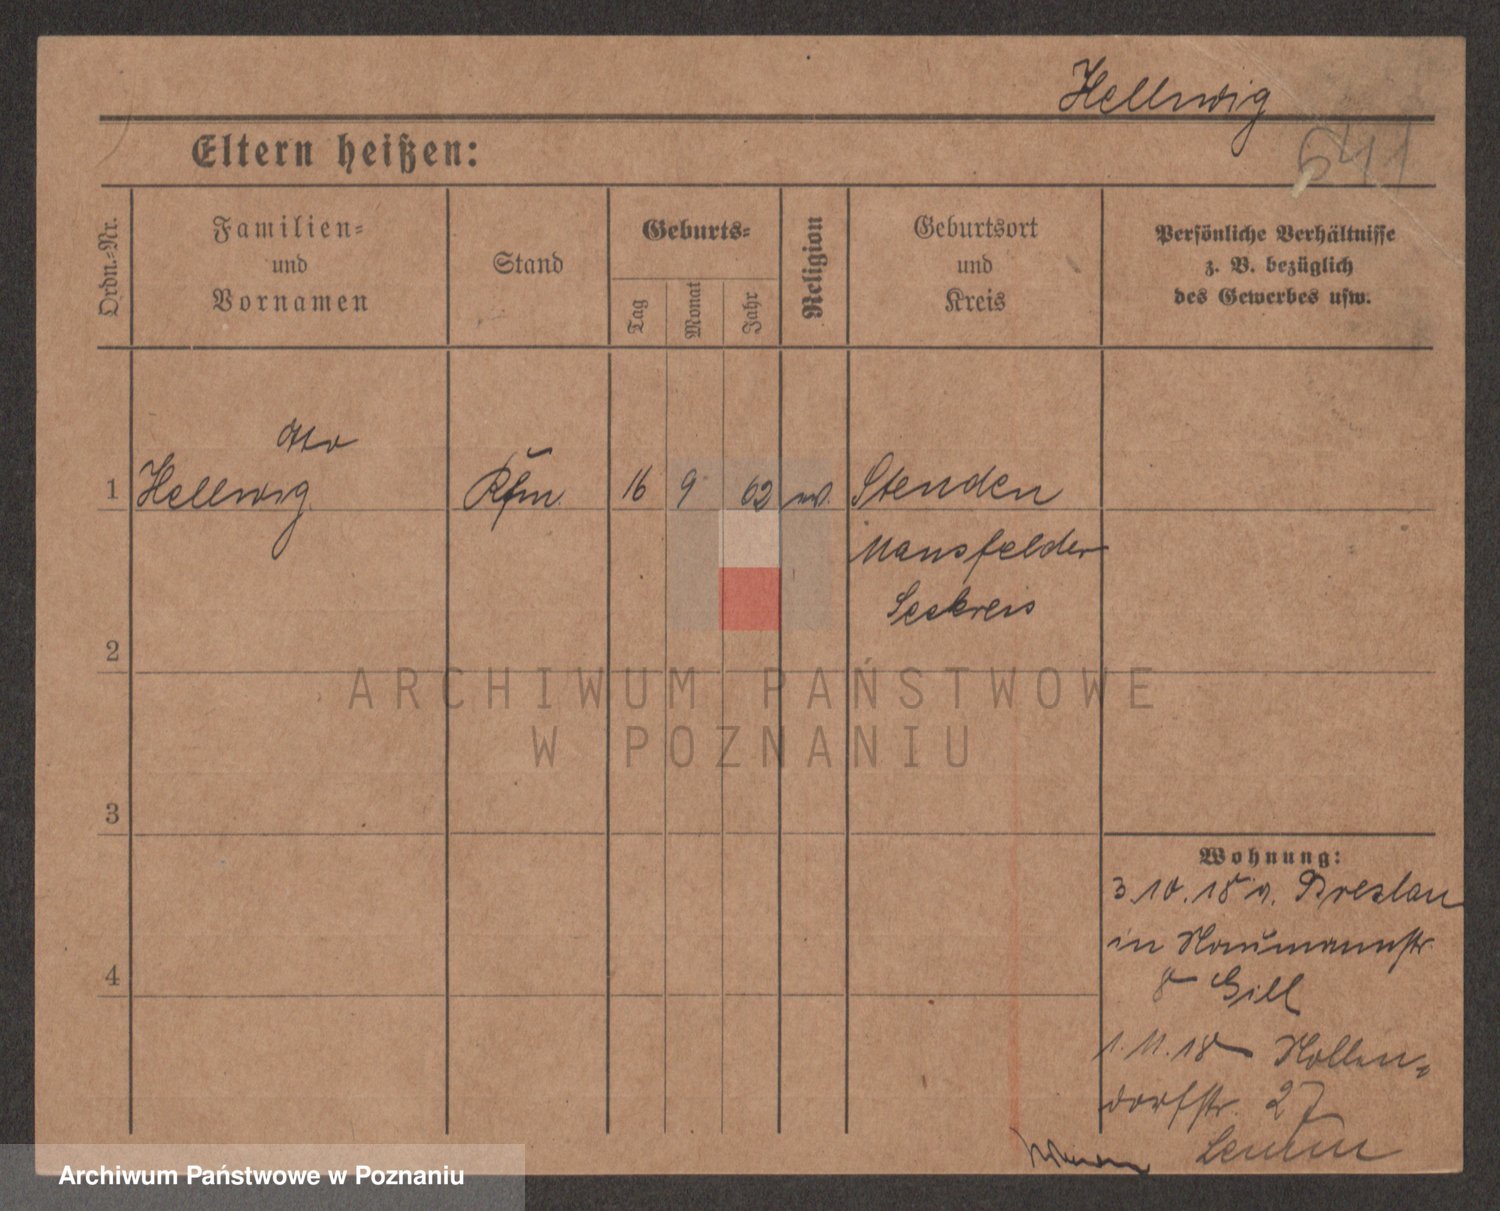 Hellwig
Eltern heißen:
Ordn.-Nr.
Familien-
und
Vornamen
Stand
Geburts-
Tag
Monat
Jahr
Religion
Geburtsort
und
Kreis
Persönliche Verhältnisse
z. B. bezüglich
des Gewerbes usw.
Otto
1 Hellwig Kfm. 16 9 62 ev. Stenden
Mansfelder
Seekreis
2
ARCHIWUM PAŃSTWOWE
W POZNANIU
3
Wohnung:
3.10.18 v. Breslau
in Naumannstr
8 Gill
4
1.11.18 Nollen-
dorfstr. 27
Archiwum Państwowe w Poznaniu